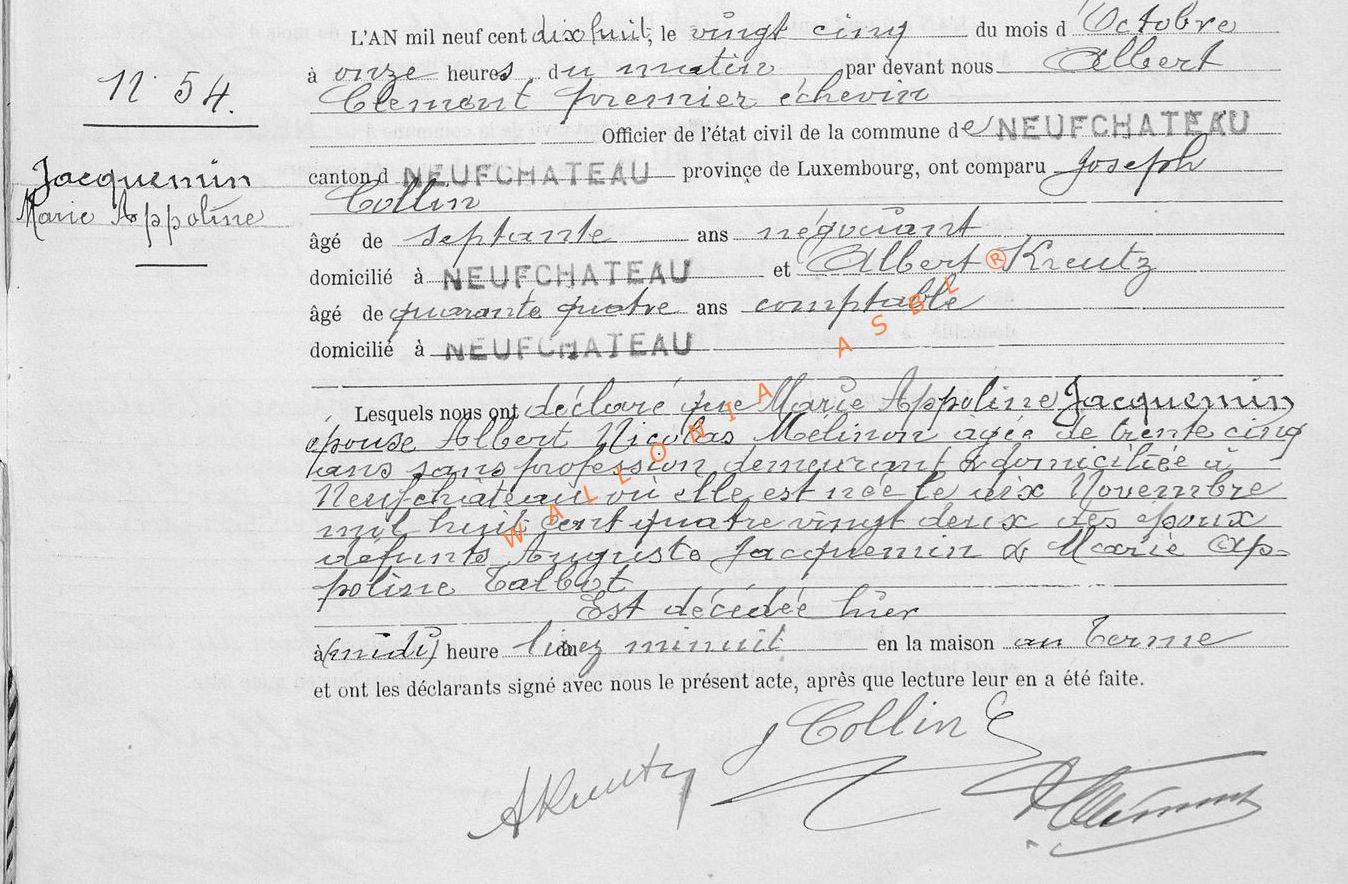 L'AN mil neuf cent dix huit, le vingt cinq du mois d'Octobre
N° 54.
à onze heures du matin par devant nous Albert
Clement, premier échevin
Officier de l'état civil de la commune de NEUFCHATEAU
Jacquemin
canton d NEUFCHATEAU province de Luxembourg, ont comparu Joseph
Marie Appoline
Collin
âgé de septante ans négociant
domicilié à NEUFCHATEAU et Albert Kreutz
âgé de quarante quatre ans comptable
domicilié à NEUFCHATEAU
WALLONIA ASBL ®
Lesquels nous ont déclaré que Marie Appoline Jacquemin
épouse Albert Nicolas Mélinon agée de trente cinq
ans sans profession demeurant & domiciliée à
Neufchâteau où elle est née le dix Novembre
mil huit cent quatre vingt deux des époux
défunts Auguste Jacquemin & Marie Ap-
poline Talbot
Est décédée hier
à (midi) heure lisez minuit en la maison au Terme
et ont les déclarants signé avec nous le présent acte, après que lecture leur en a été faite.
J Collin
AKreutz
AClément